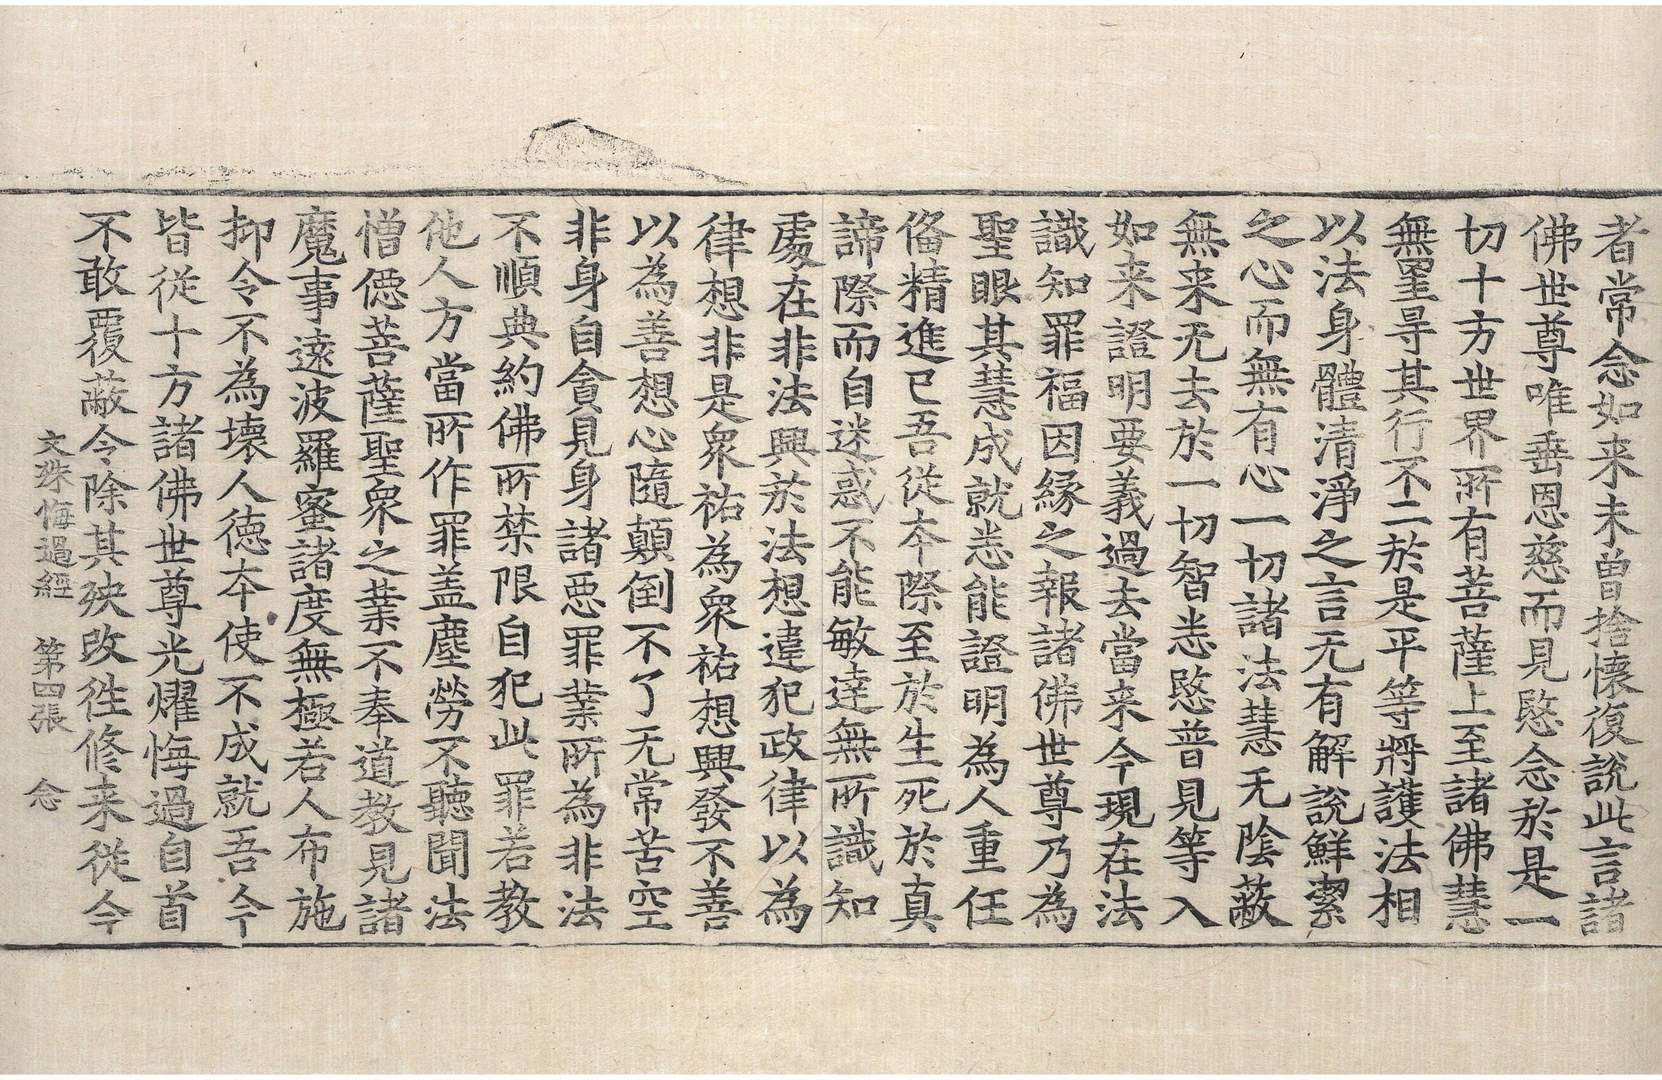 者常念如来未曾捨懷復說此言諸
佛世尊唯垂恩慈而見愍念於是一
切十方世界所有菩薩上至諸佛慧
無罣㝵其行不二於是平等將護法相
以法身體清淨之言无有解說鮮潔
之心而無有心一切諸法慧无陰蔽
無来无去於一切智悉愍普見等入
如来證明要義過去當来今現在法
識知罪福因緣之報諸佛世尊乃為
聖眼其慧成就悉能證明為人重任
俻精進已吾從夲際至於生死於真
諦際而自迷惑不能敏達無所識知
處在非法興於法想違犯政律以為
律想非是衆祐為衆祐想興發不善
以為善想心隨顛倒不了无常苦空
非身自貪見身諸惡罪業所為非法
不順典約佛所禁限自犯此罪若教
他人方當所作罪盖塵勞不聽聞法
憎僫菩薩聖衆之業不奉道教見諸
魔事遠波羅蜜諸度無極若人布施
抑令不為壊人德夲使不成就吾今
皆從十方諸佛世尊光耀悔過自首
不敢覆蔽今除其殃改往修来從今
文殊悔過經　第四張　念